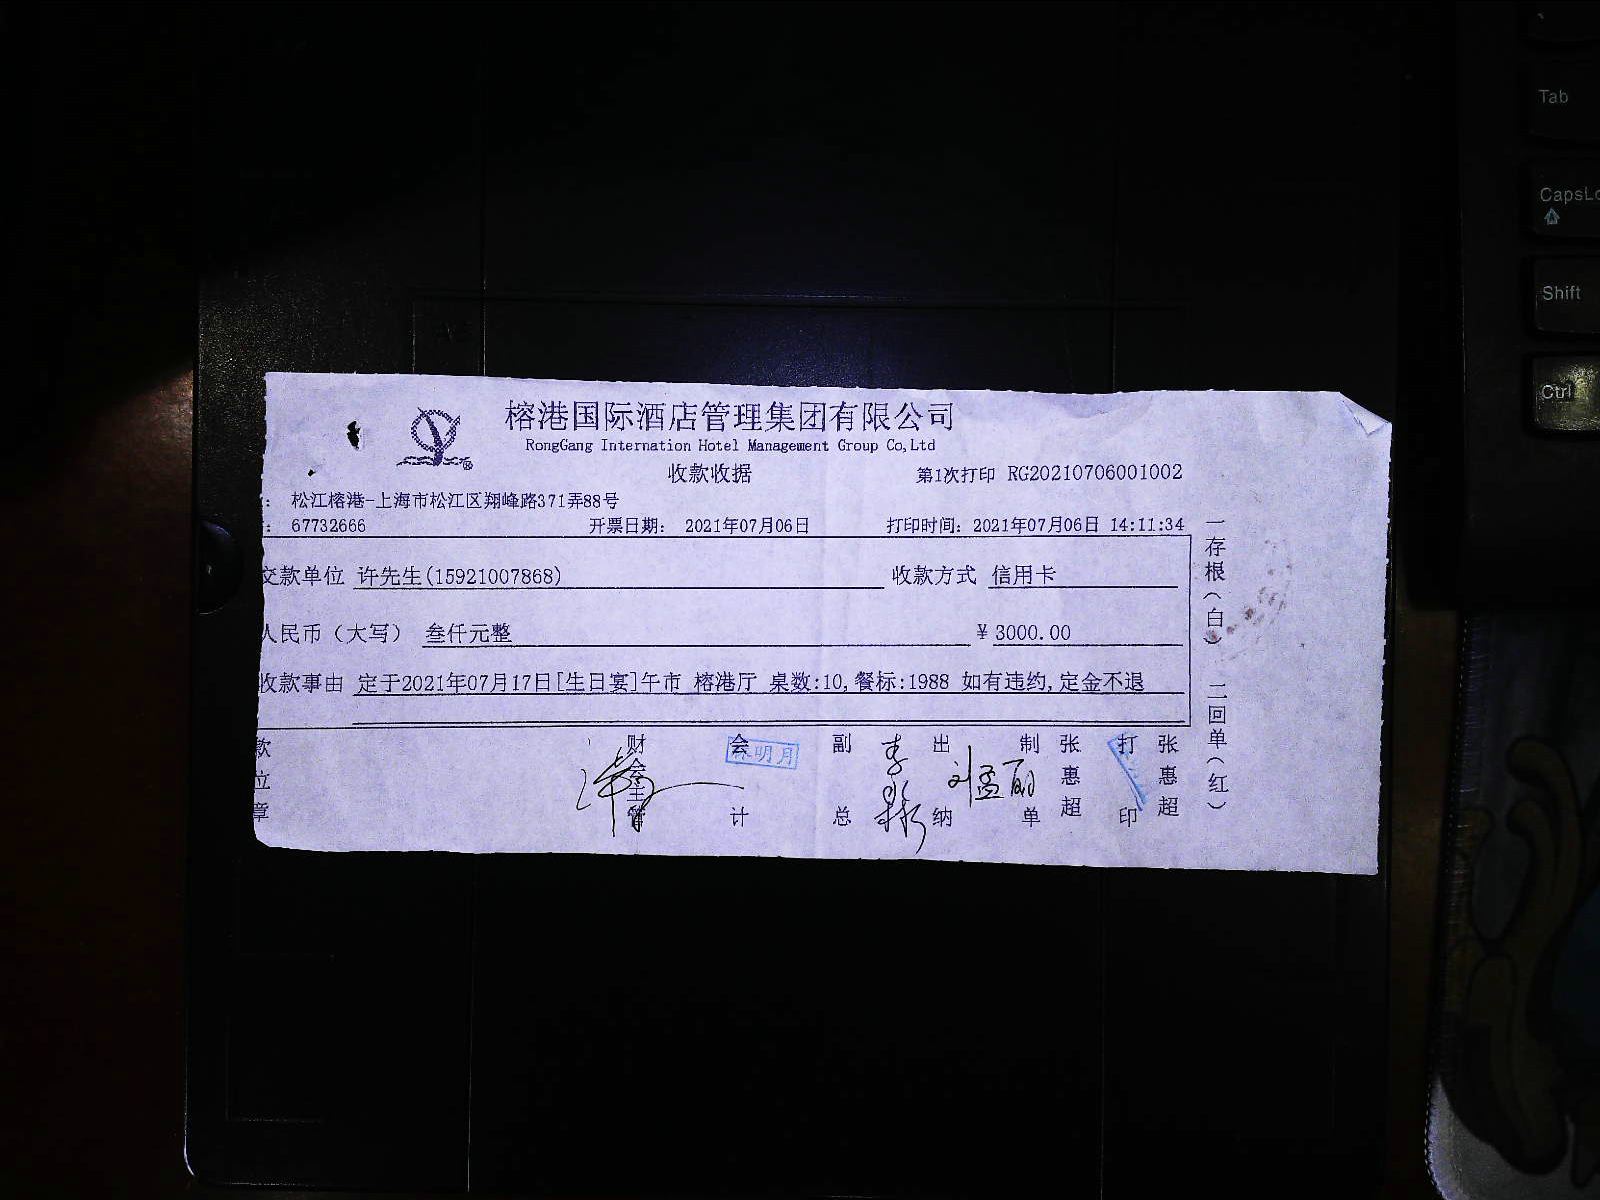 榕港国际酒店管理集团有限公司
RongGang Internation Hotel Management Group Co,Ltd
收款收据 第1次打印 RG20210706001002
： 松江榕港-上海市松江区翔峰路371弄88号
： 67732666 开票日期： 2021年07月06日 打印时间：2021年07月06日 14:11:34
交款单位 许先生(15921007868) 收款方式 信用卡
人民币（大写） 叁仟元整 ¥ 3000.00
收款事由 定于2021年07月17日[生日宴]午市 榕港厅 桌数:10,餐标:1988 如有违约,定金不退
款位章 财会主管 会计 明月 副总 李彬 出纳 刘孟丽 制单 张惠超 打印 张惠超
一存根（白） 二回单（红）
Tab
CapsLo
Shift
Ctrl